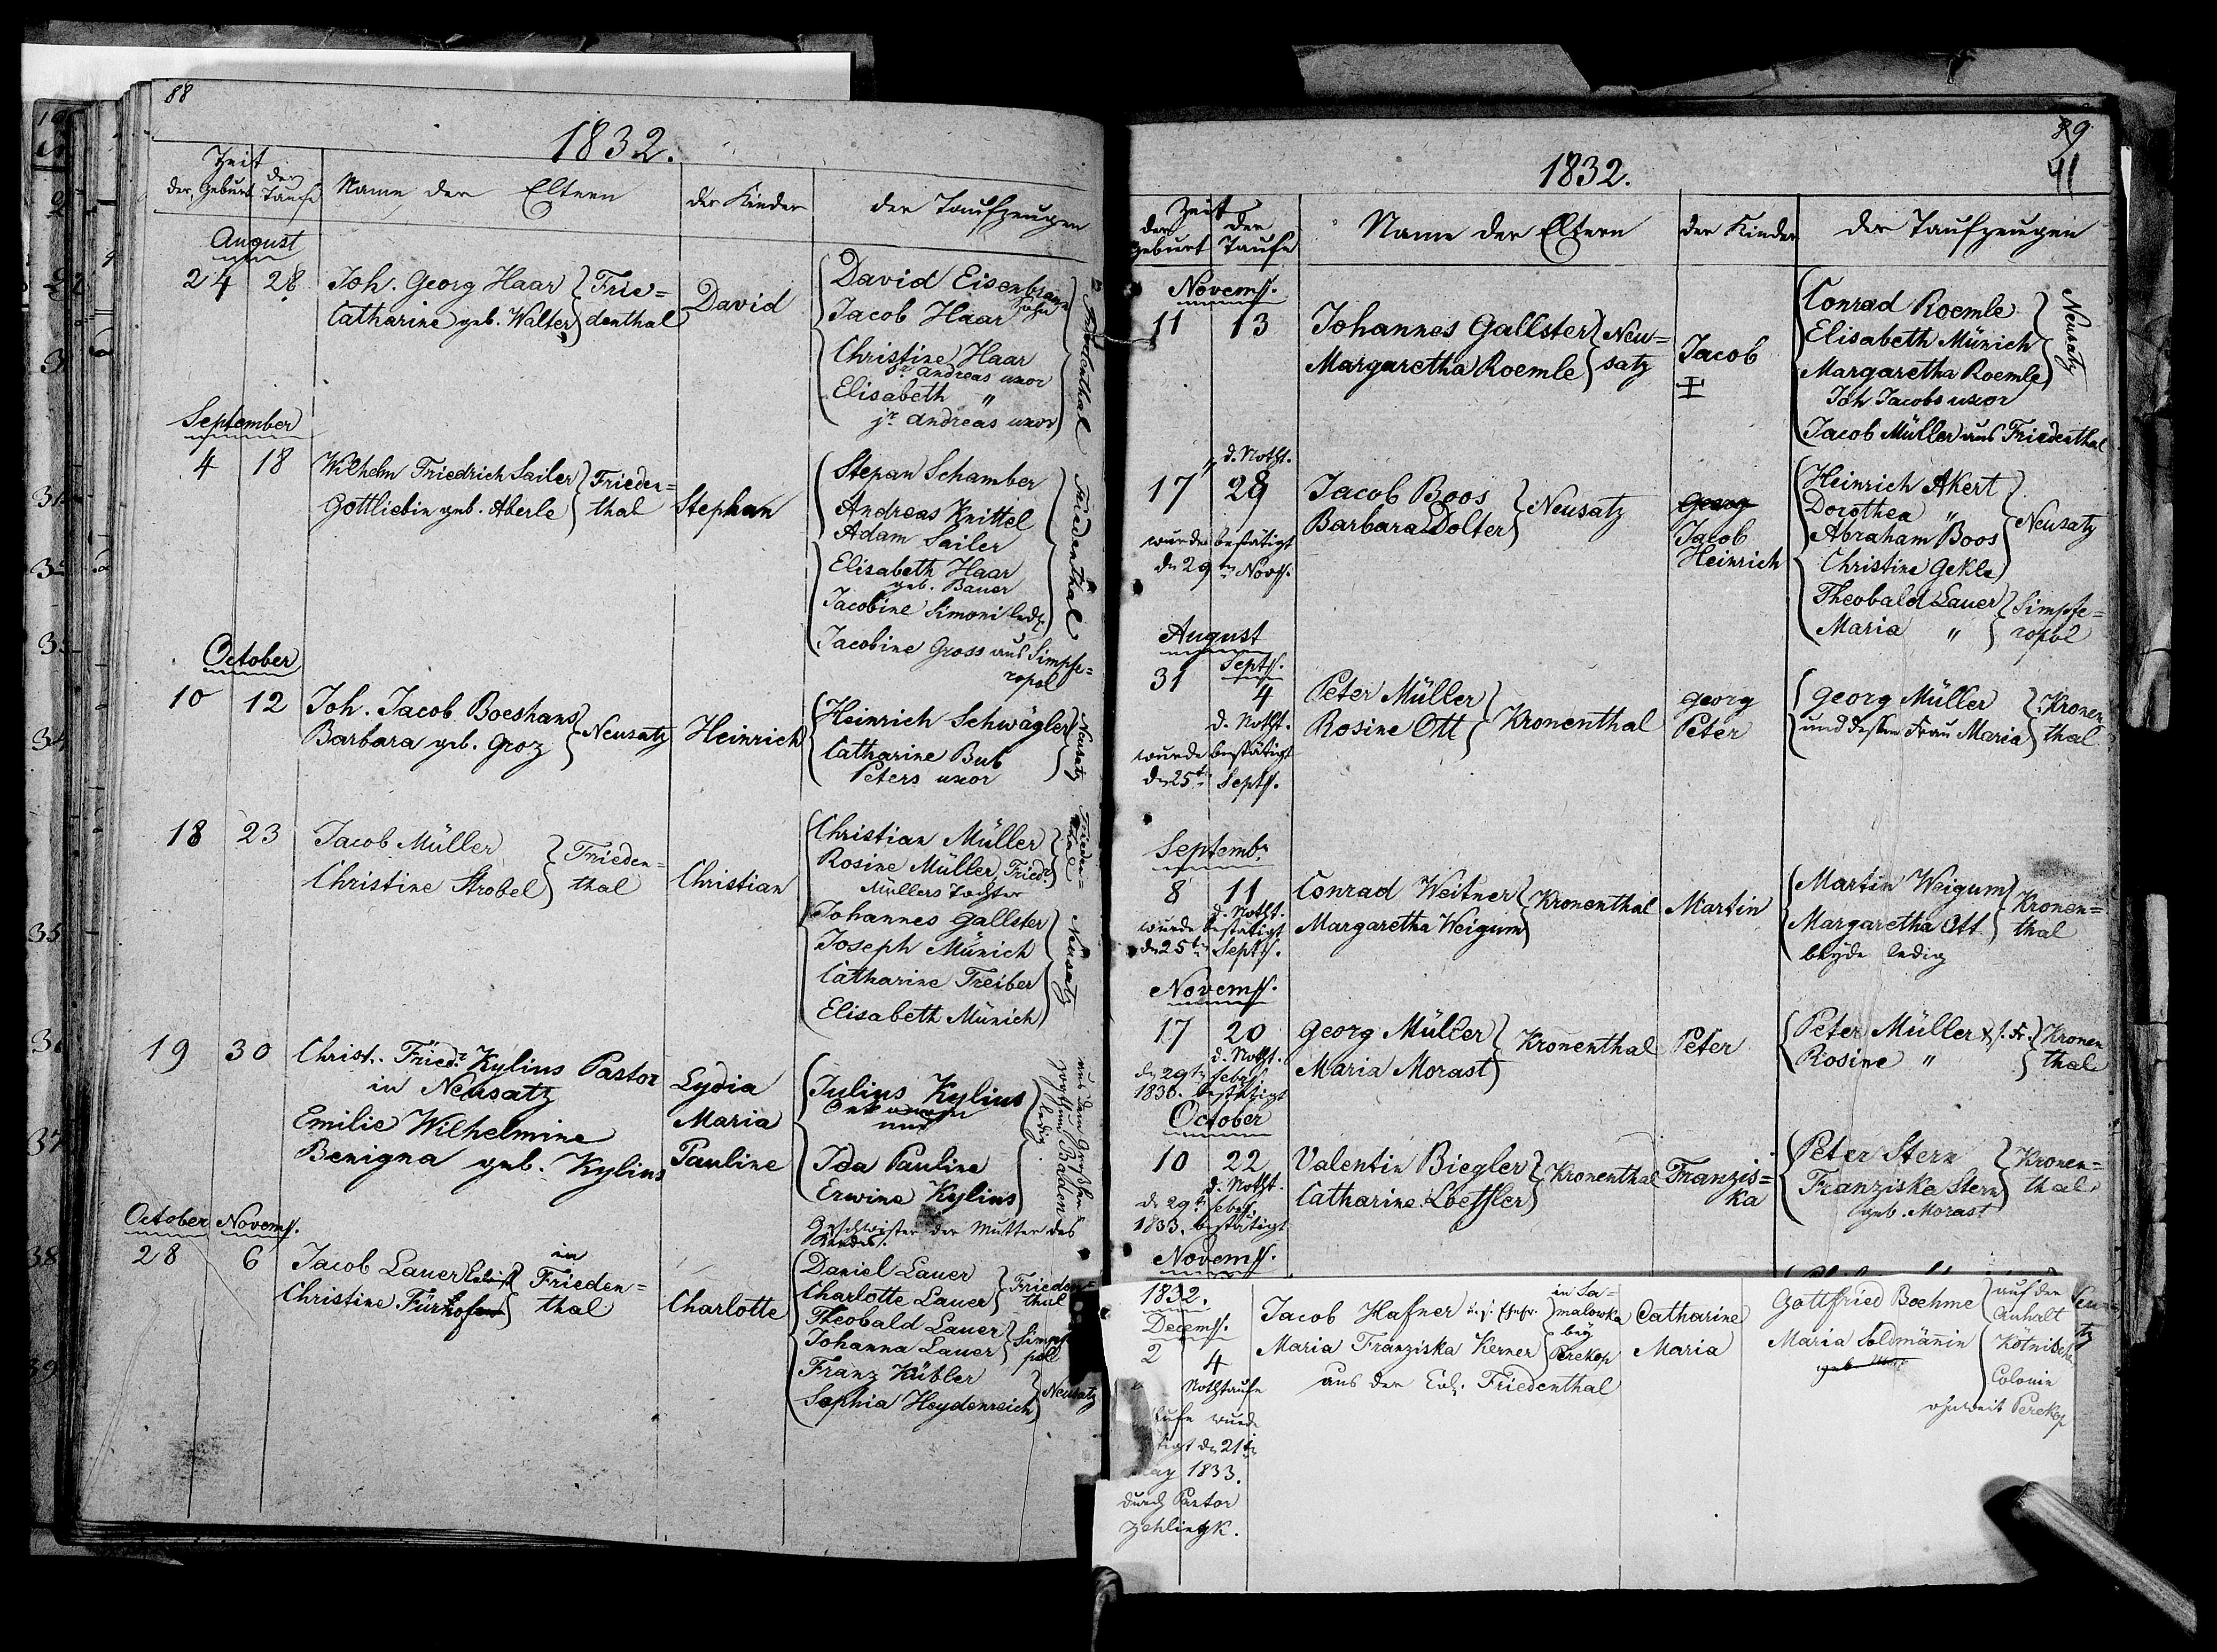 88
1832.
Zeit
der Geburt
der Taufe
Name der Eltern
der Kinder
der Taufzeugen
August
24 28 Joh. Georg Haar
Catharine geb. Walter
Frie=
denthal
David
David Eisenbraun
Sohn
Jacob Haar
Christine Haar
Sr Andreas uxor
Elisabeth "
jr Andreas uxor
Friedenthal
September
4 18 Wilhelm Friedrich Sailer
Gottliebin geb. Aberle
Frieden=
thal
Stephan
Stepan Schamber
Andreas Knittel
Adam Sailer
Elisabeth Haar
geb. Bauer
Jacobine Simoni led.
Friedenthal
Jacobine Gross aus Simpfe=
ropol
October
10 12 Joh. Jacob Boeshans
Barbara geb. Groz
Neusatz
Heinrich
Heinrich Schwägler
Catharine Bub
Peters uxor
Neusatz
18 23 Jacob Müller
Christine Strobel
Frieden=
thal
Christian
Christian Müller
Rosine Müller, Friedr.
Müllers Tochter
Frieden=
thal
Johannes Gallster
Joseph Münich
Catharine Treiber
Elisabeth Münich
Neusatz
19 30 Christ. Friedr. Kylius Pastor
in Neusatz
Emilie Wilhelmine
Benigna geb. Kylius
Lydia
Maria
Pauline
Julius Kylius
und
Ida Pauline
Erwine Kylius
ledig.
aus dem Großher=
zogthum Baaden
Geschwister der Mutter des
Kindes.
October Novemb.
28 6 Jacob Lauer
Christine Fürkofen
in
Frieden=
thal
Charlotte
Daniel Lauer
Charlotte Lauer
Frieden=
thal
Theobald Lauer
Johanna Lauer
Franz Kübler
Sophia Heydenreich
Neusatz
89
41
1832.
Zeit
der Geburt
der Taufe
Name der Eltern
der Kinder
der Taufzeugen
Novemb.
11 13 Johannes Gallster
Margaretha Roemle
Neu=
satz
Jacob
Conrad Roemle
Elisabeth Münich
Margaretha Roemle
Joh. Jacobs uxor
Neusatz
Jacob Müller aus Friedenthal
" d. Notht.
17 28 Jacob Boos
Barbara Dolter
Neusatz
wurde bestätigt
d. 29ten Novb.
Georg
Jacob
Heinrich
Heinrich Akert
Dorothea "
Abraham Boos
Christine Gekle
Neusatz
Theobald Lauer
Maria "
Simpfe=
ropol
August
Septb.
31 4 Peter Müller
Rosine Ott
Kronenthal
d. Notht.
wurde bestätigt
d. 25ten Septb.
Georg
Peter
Georg Müller
und dessen Frau Maria
Kronen
thal
Septembr.
8 11 Conrad Weitner
Margaretha Weigum
Kronenthal
d. Notht.
wurde bestätigt
d. 25ten Septb.
Martin
Martin Weigum
Margaretha Ott
beyde ledig
Kronen=
thal
Novemb.
17 20 Georg Müller
Maria Morast
Kronenthal
d. Notht.
d. 29ten Febr.
1833. bestätigt
Peter
Peter Müller
Rosine "
Kronen
thal
October
10 22 Valentin Biegler
Catharine Loeffler
Kronenthal
d. Notht.
d. 29ten Febr.
1833. bestätigt
Franzis=
ka
Peter Stern
Franziska Stern
geb. Morast
Kronen=
thal
Novemb.
1832.
Decemb.
2 4
Nothtaufe
Jacob Hafner
Maria Franziska Kerner
aus der Col. Friedenthal
in Sa=
malowka
bey
Perekop
Catharine
Maria
Gottfried Boehme
Maria Soldmännin
auf der
Anhalt
Kötnische
Colonie
ohnweit Perekop
wurde
d. 21ten
May 1833.
durch Pastor